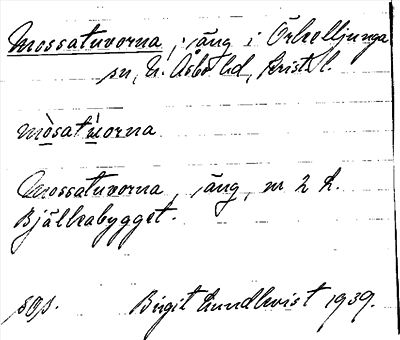 Mossatuvorna, äng i Örkelljunga
sn, N. Åsbo hd, Krist. l.
mòsatúorna
Mossatuvorna, äng, nr 2 h.
Bjälkabygget.
Birgit Lundkvist 1939.